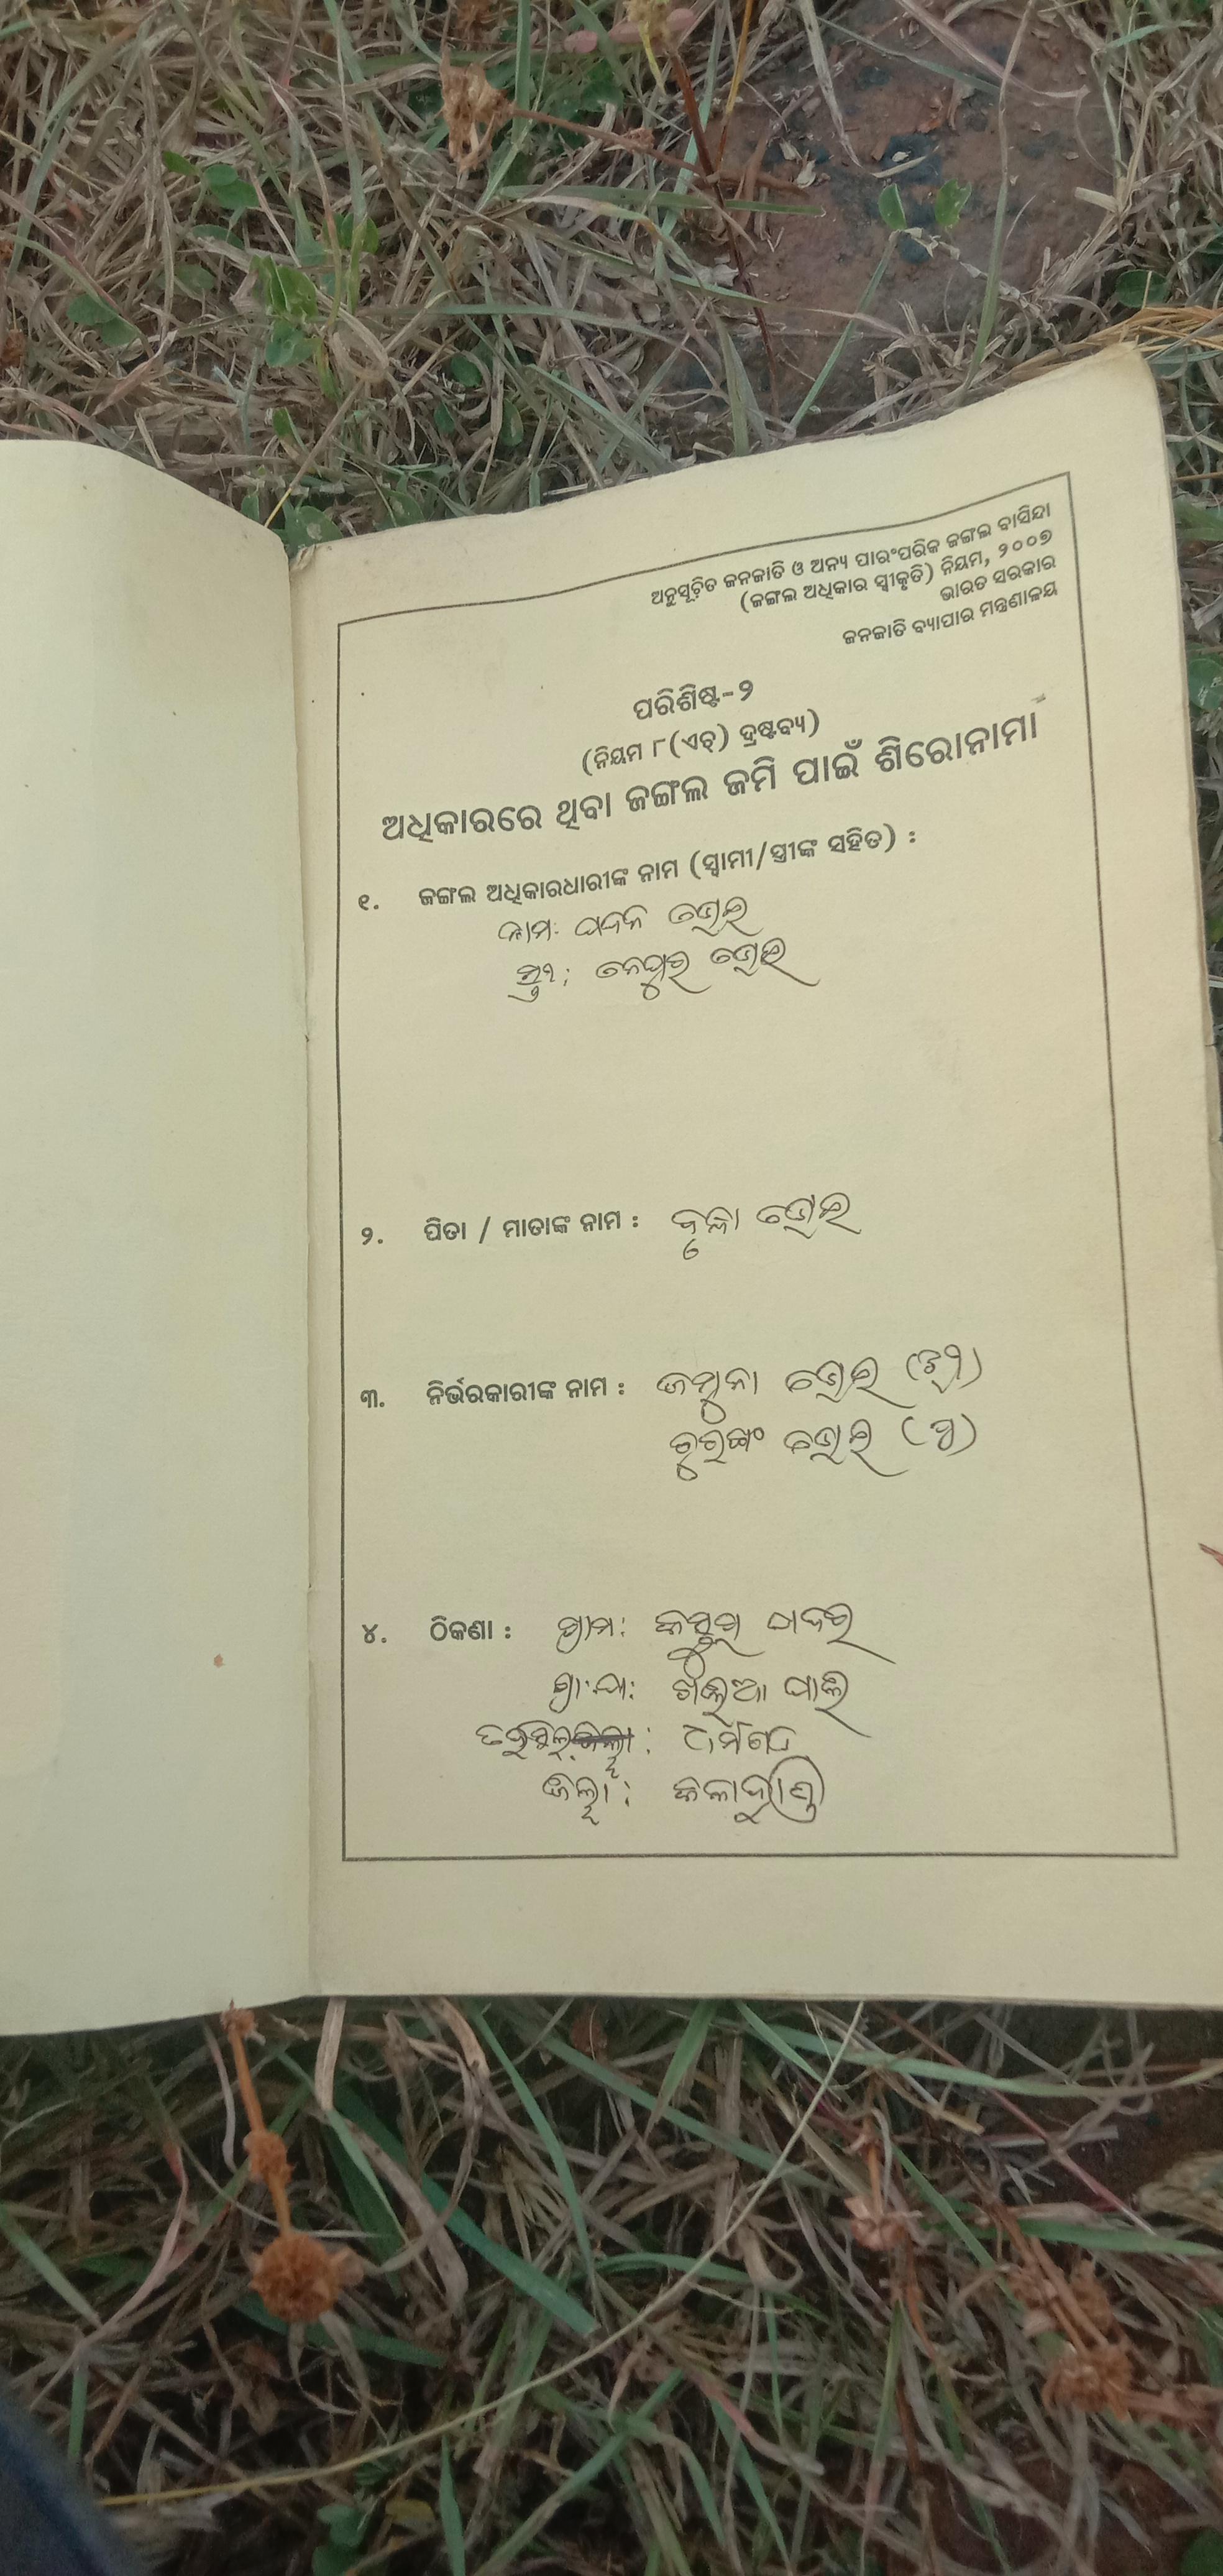 ଅନୁସୂଚିତ ଜନଜାତି ଓ ଅନ୍ୟ ପାରଂପରିକ ଜଙ୍ଗଲ ବାସିନ୍ଦା
(ଜଙ୍ଗଲ ଅଧିକାର ସ୍ୱୀକୃତି) ନିୟମ, ୨୦୦୭
ଭାରତ ସରକାର
ଜନଜାତି ବ୍ୟାପାର ମନ୍ତ୍ରଣାଳୟ
ପରିଶିଷ୍ଟ-୨
(ନିୟମ ୮(ଏଚ୍) ଦ୍ରଷ୍ଟବ୍ୟ)
ଅଧିକାରରେ ଥିବା ଜଙ୍ଗଲ ଜମି ପାଇଁ ଶିରୋନାମା
୧. ଜଙ୍ଗଲ ଅଧିକାରଧାରୀଙ୍କ ନାମ (ସ୍ୱାମୀ/ସ୍ତ୍ରୀଙ୍କ ସହିତ) :
ନାମ: ପବନ ଭୋଇ
ଭୋଇ
୨. ପିତା / ମାତାଙ୍କ ନାମ : ଭୋଇ
୩. ନିର୍ଭରକାରୀଙ୍କ ନାମ : ଜମୁନା ଭୋଇ (ସ୍ତ୍ରୀ)
ଭୋଇ (ପୁ)
୪. ଠିକଣା : ଗ୍ରାମ:
ଗ୍ରା.ପା:
ଧର୍ମଗଡ
ଜିଲ୍ଲା : କଳାହାଣ୍ଡି